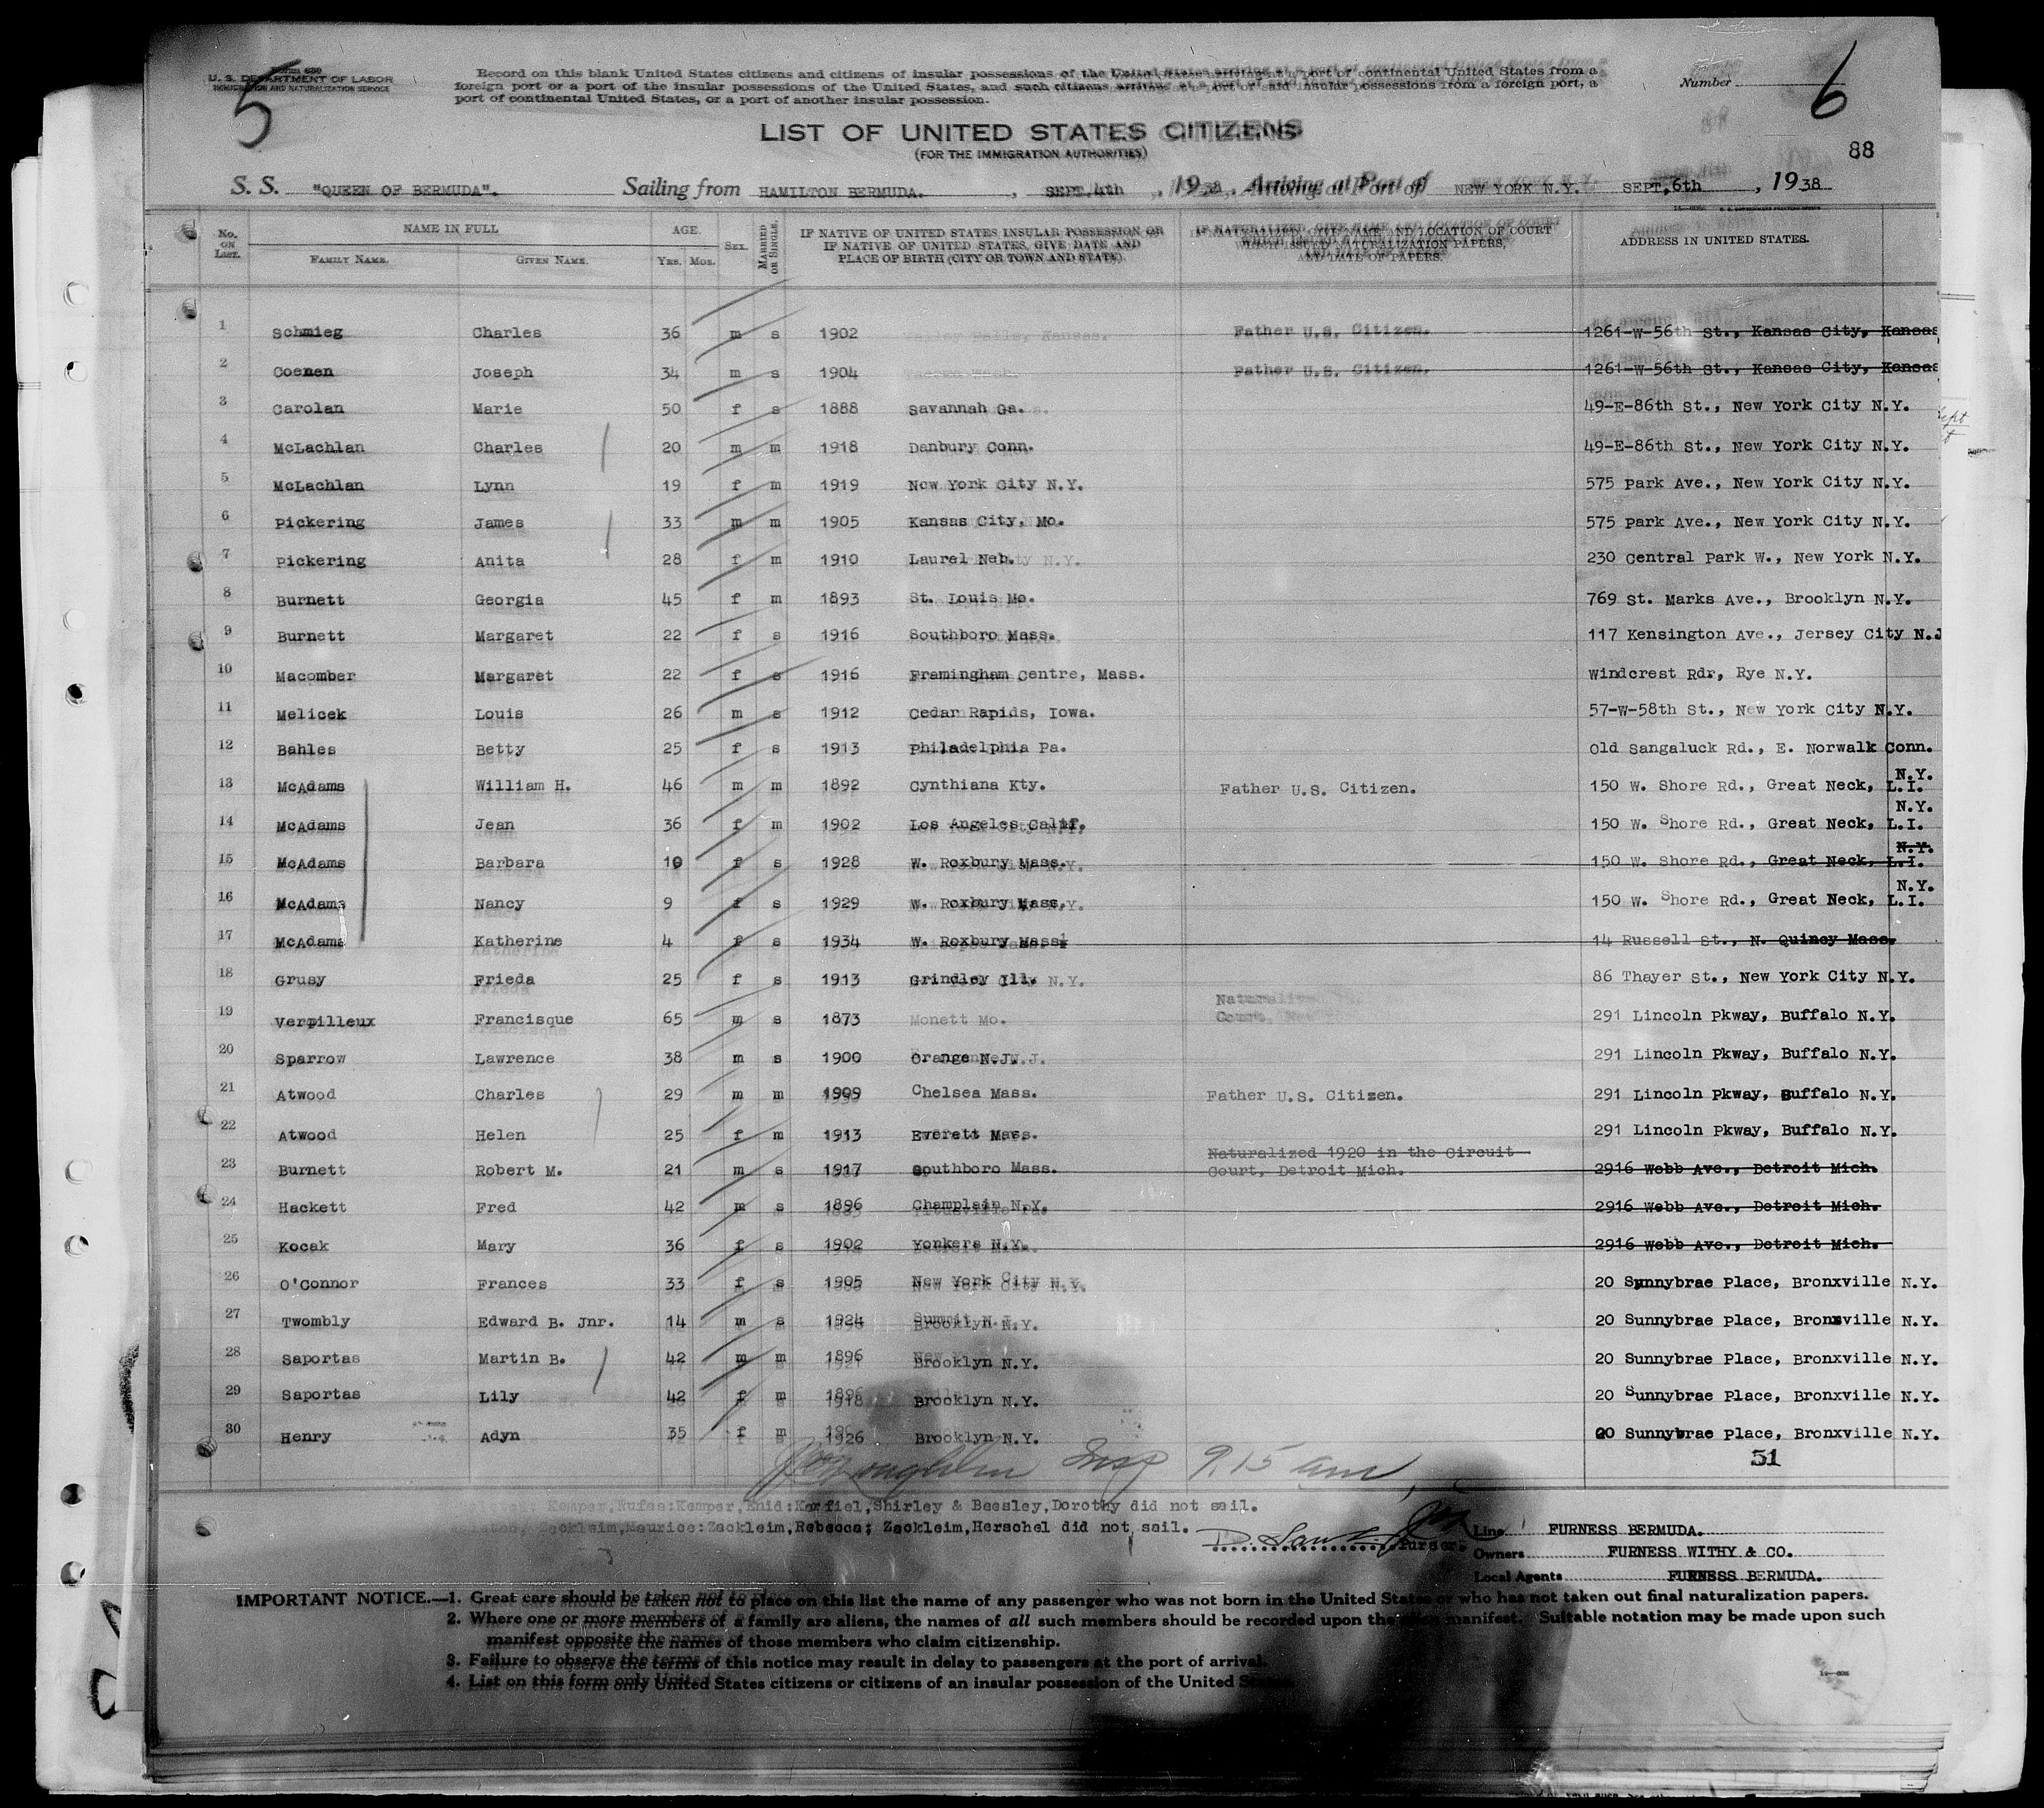 5
6
Form 630
U. S. DEPARTMENT OF LABOR
IMMIGRATION AND NATURALIZATION SERVICE
Record on this blank United States citizens and citizens of insular possessions of the United States arriving at a port of continental United States from a
foreign port or a port of the insular possessions of the United States, and such citizens arriving at a port of said insular possessions from a foreign port, a
port of continental United States, or a port of another insular possession.
Number
LIST OF UNITED STATES CITIZENS
(FOR THE IMMIGRATION AUTHORITIES)
88
S. S. "QUEEN OF BERMUDA". Sailing from HAMILTON BERMUDA. , SEPT.4th , 1938, Arriving at Port of NEW YORK N.Y. SEPT.6th , 1938
No. ON LIST. NAME IN FULL AGE. SEX. MARRIED OR SINGLE. IF NATIVE OF UNITED STATES INSULAR POSSESSION OR IF NATIVE OF UNITED STATES, GIVE DATE AND PLACE OF BIRTH (CITY OR TOWN AND STATE). IF NATURALIZED, GIVE NAME AND LOCATION OF COURT WHICH ISSUED NATURALIZATION PAPERS, AND DATE OF PAPERS. ADDRESS IN UNITED STATES.
FAMILY NAME. GIVEN NAME. YRS. MOS.
1 Schmieg Charles 36 m s 1902 Kansas. Father U.S. Citizen. 1261-W-56th St., Kansas City, Kansas
2 Coenen Joseph 34 m s 1904 Father U.S. Citizen. 1261-W-56th St., Kansas City, Kansas
3 Carolan Marie 50 f s 1888 Savannah Ga. 49-E-86th St., New York City N.Y.
4 McLachlan Charles 20 m m 1918 Danbury Conn. 49-E-86th St., New York City N.Y.
5 McLachlan Lynn 19 f m 1919 New York City N.Y. 575 Park Ave., New York City N.Y.
6 Pickering James 33 m m 1905 Kansas City, Mo. 575 Park Ave., New York City N.Y.
7 Pickering Anita 28 f m 1910 Laurel Neb. 230 Central Park W., New York N.Y.
8 Burnett Georgia 45 f m 1893 St. Louis Mo. 769 St. Marks Ave., Brooklyn N.Y.
9 Burnett Margaret 22 f s 1916 Southboro Mass. 117 Kensington Ave., Jersey City N.J
10 Macomber Margaret 22 f s 1916 Framingham Centre, Mass. Windcrest Rdr, Rye N.Y.
11 Melicek Louis 26 m s 1912 Cedar Rapids, Iowa. 57-W-58th St., New York City N.Y.
12 Bahles Betty 25 f s 1913 Philadelphia Pa. Old Sangaluck Rd., E. Norwalk Conn.
13 McAdams William H. 46 m m 1892 Cynthiana Kty. Father U.S. Citizen. 150 W. Shore Rd., Great Neck, L.I. N.Y.
14 McAdams Jean 36 f m 1902 Los Angeles Calif. 150 W. Shore Rd., Great Neck, L.I. N.Y.
15 McAdams Barbara 10 f s 1928 W. Roxbury Mass. 150 W. Shore Rd., Great Neck, L.I. N.Y.
16 McAdams Nancy 9 f s 1929 W. Roxbury Mass. 150 W. Shore Rd., Great Neck, L.I. N.Y.
17 McAdams Katherine 4 f s 1934 W. Roxbury Mass. 14 Russell St., N. Quincy Mass.
18 Grusy Frieda 25 f s 1913 Grindley Ill. 86 Thayer St., New York City N.Y.
19 Vermilleux Francisque 65 m s 1873 Monett Mo. 291 Lincoln Pkway, Buffalo N.Y.
20 Sparrow Lawrence 38 m s 1900 Orange N.J. 291 Lincoln Pkway, Buffalo N.Y.
21 Atwood Charles 29 m m 1909 Chelsea Mass. Father U.S. Citizen. 291 Lincoln Pkway, Buffalo N.Y.
22 Atwood Helen 25 f m 1913 Everett Mass. 291 Lincoln Pkway, Buffalo N.Y.
23 Burnett Robert M. 21 m s 1917 Southboro Mass. Naturalized 1920 in the Circuit Court, Detroit Mich. 2916 Webb Ave., Detroit Mich.
24 Hackett Fred 42 m s 1896 Champlain N.Y. 2916 Webb Ave., Detroit Mich.
25 Kocak Mary 36 f s 1902 Yonkers N.Y. 2916 Webb Ave., Detroit Mich.
26 O'Connor Frances 33 f s 1905 New York City N.Y. 20 Sunnybrae Place, Bronxville N.Y.
27 Twombly Edward B. Jnr. 14 m s 1924 Summit N.J. Brooklyn N.Y. 20 Sunnybrae Place, Bronxville N.Y.
28 Saportas Martin B. 42 m m 1896 Brooklyn N.Y. 20 Sunnybrae Place, Bronxville N.Y.
29 Saportas Lily 42 f m 1896 1918 Brooklyn N.Y. 20 Sunnybrae Place, Bronxville N.Y.
30 Henry Adyn 35 f m 1926 Brooklyn N.Y. 20 Sunnybrae Place, Bronxville N.Y.
51
Insp 9.15 am
Kemper,Rufus:Kemper,Enid:Korfiel,Shirley & Beesley,Dorothy did not sail.
Zackleim,Maurice:Zackleim,Rebecca; Zackleim,Herschel did not sail.
Purser.
Line FURNESS BERMUDA.
Owners FURNESS WITHY & CO.
Local Agents FURNESS BERMUDA.
IMPORTANT NOTICE.—1. Great care should be taken not to place on this list the name of any passenger who was not born in the United States or who has not taken out final naturalization papers.
2. Where one or more members of a family are aliens, the names of all such members should be recorded upon the alien manifest. Suitable notation may be made upon such
manifest opposite the names of those members who claim citizenship.
3. Failure to observe the terms of this notice may result in delay to passengers at the port of arrival.
4. List on this form only United States citizens or citizens of an insular possession of the United States.